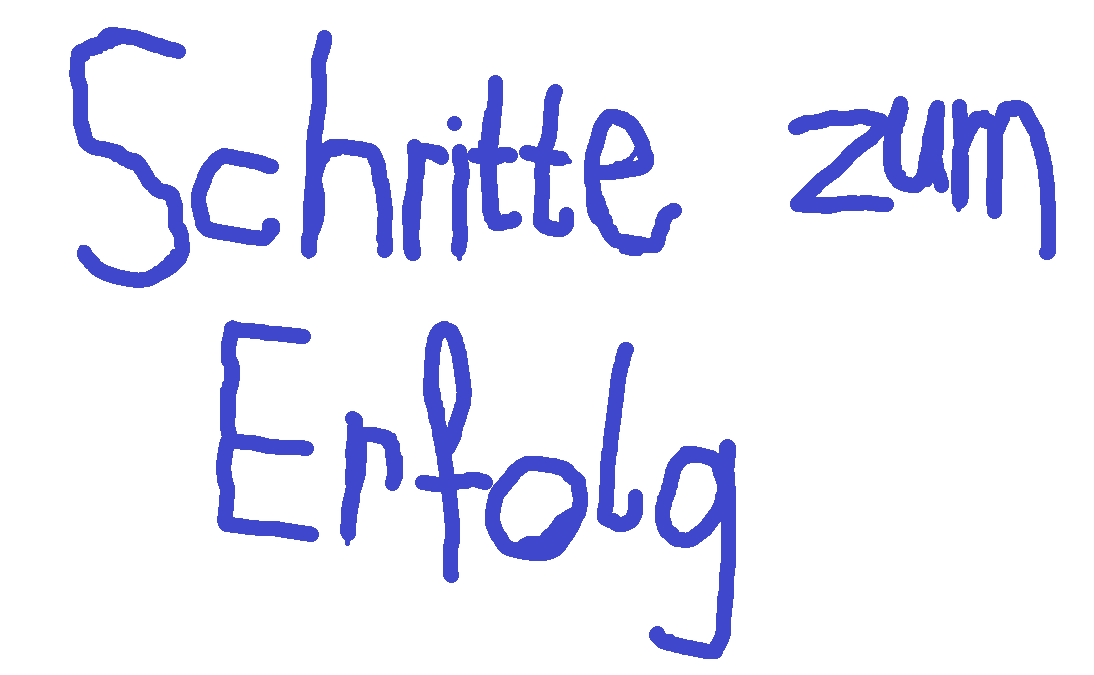 Schritte zum
Erfolg